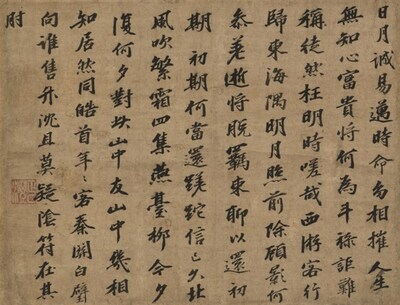 日月誠易邁時命多相摧人生
無知心富貴將何為斗祿詎難
稱徒然枉明時嗟哉西游客行
歸東海隅明月照前除顧影何
泰差逝將脫羈束聊以還初
期初期何當還蹉跎信已久北
風吹繁霜四集燕臺柳今夕
復何夕對此山中友山中幾相
知居然同皓首年〻客秦關白璧
向誰售升沈且莫疑陰符在其
肘